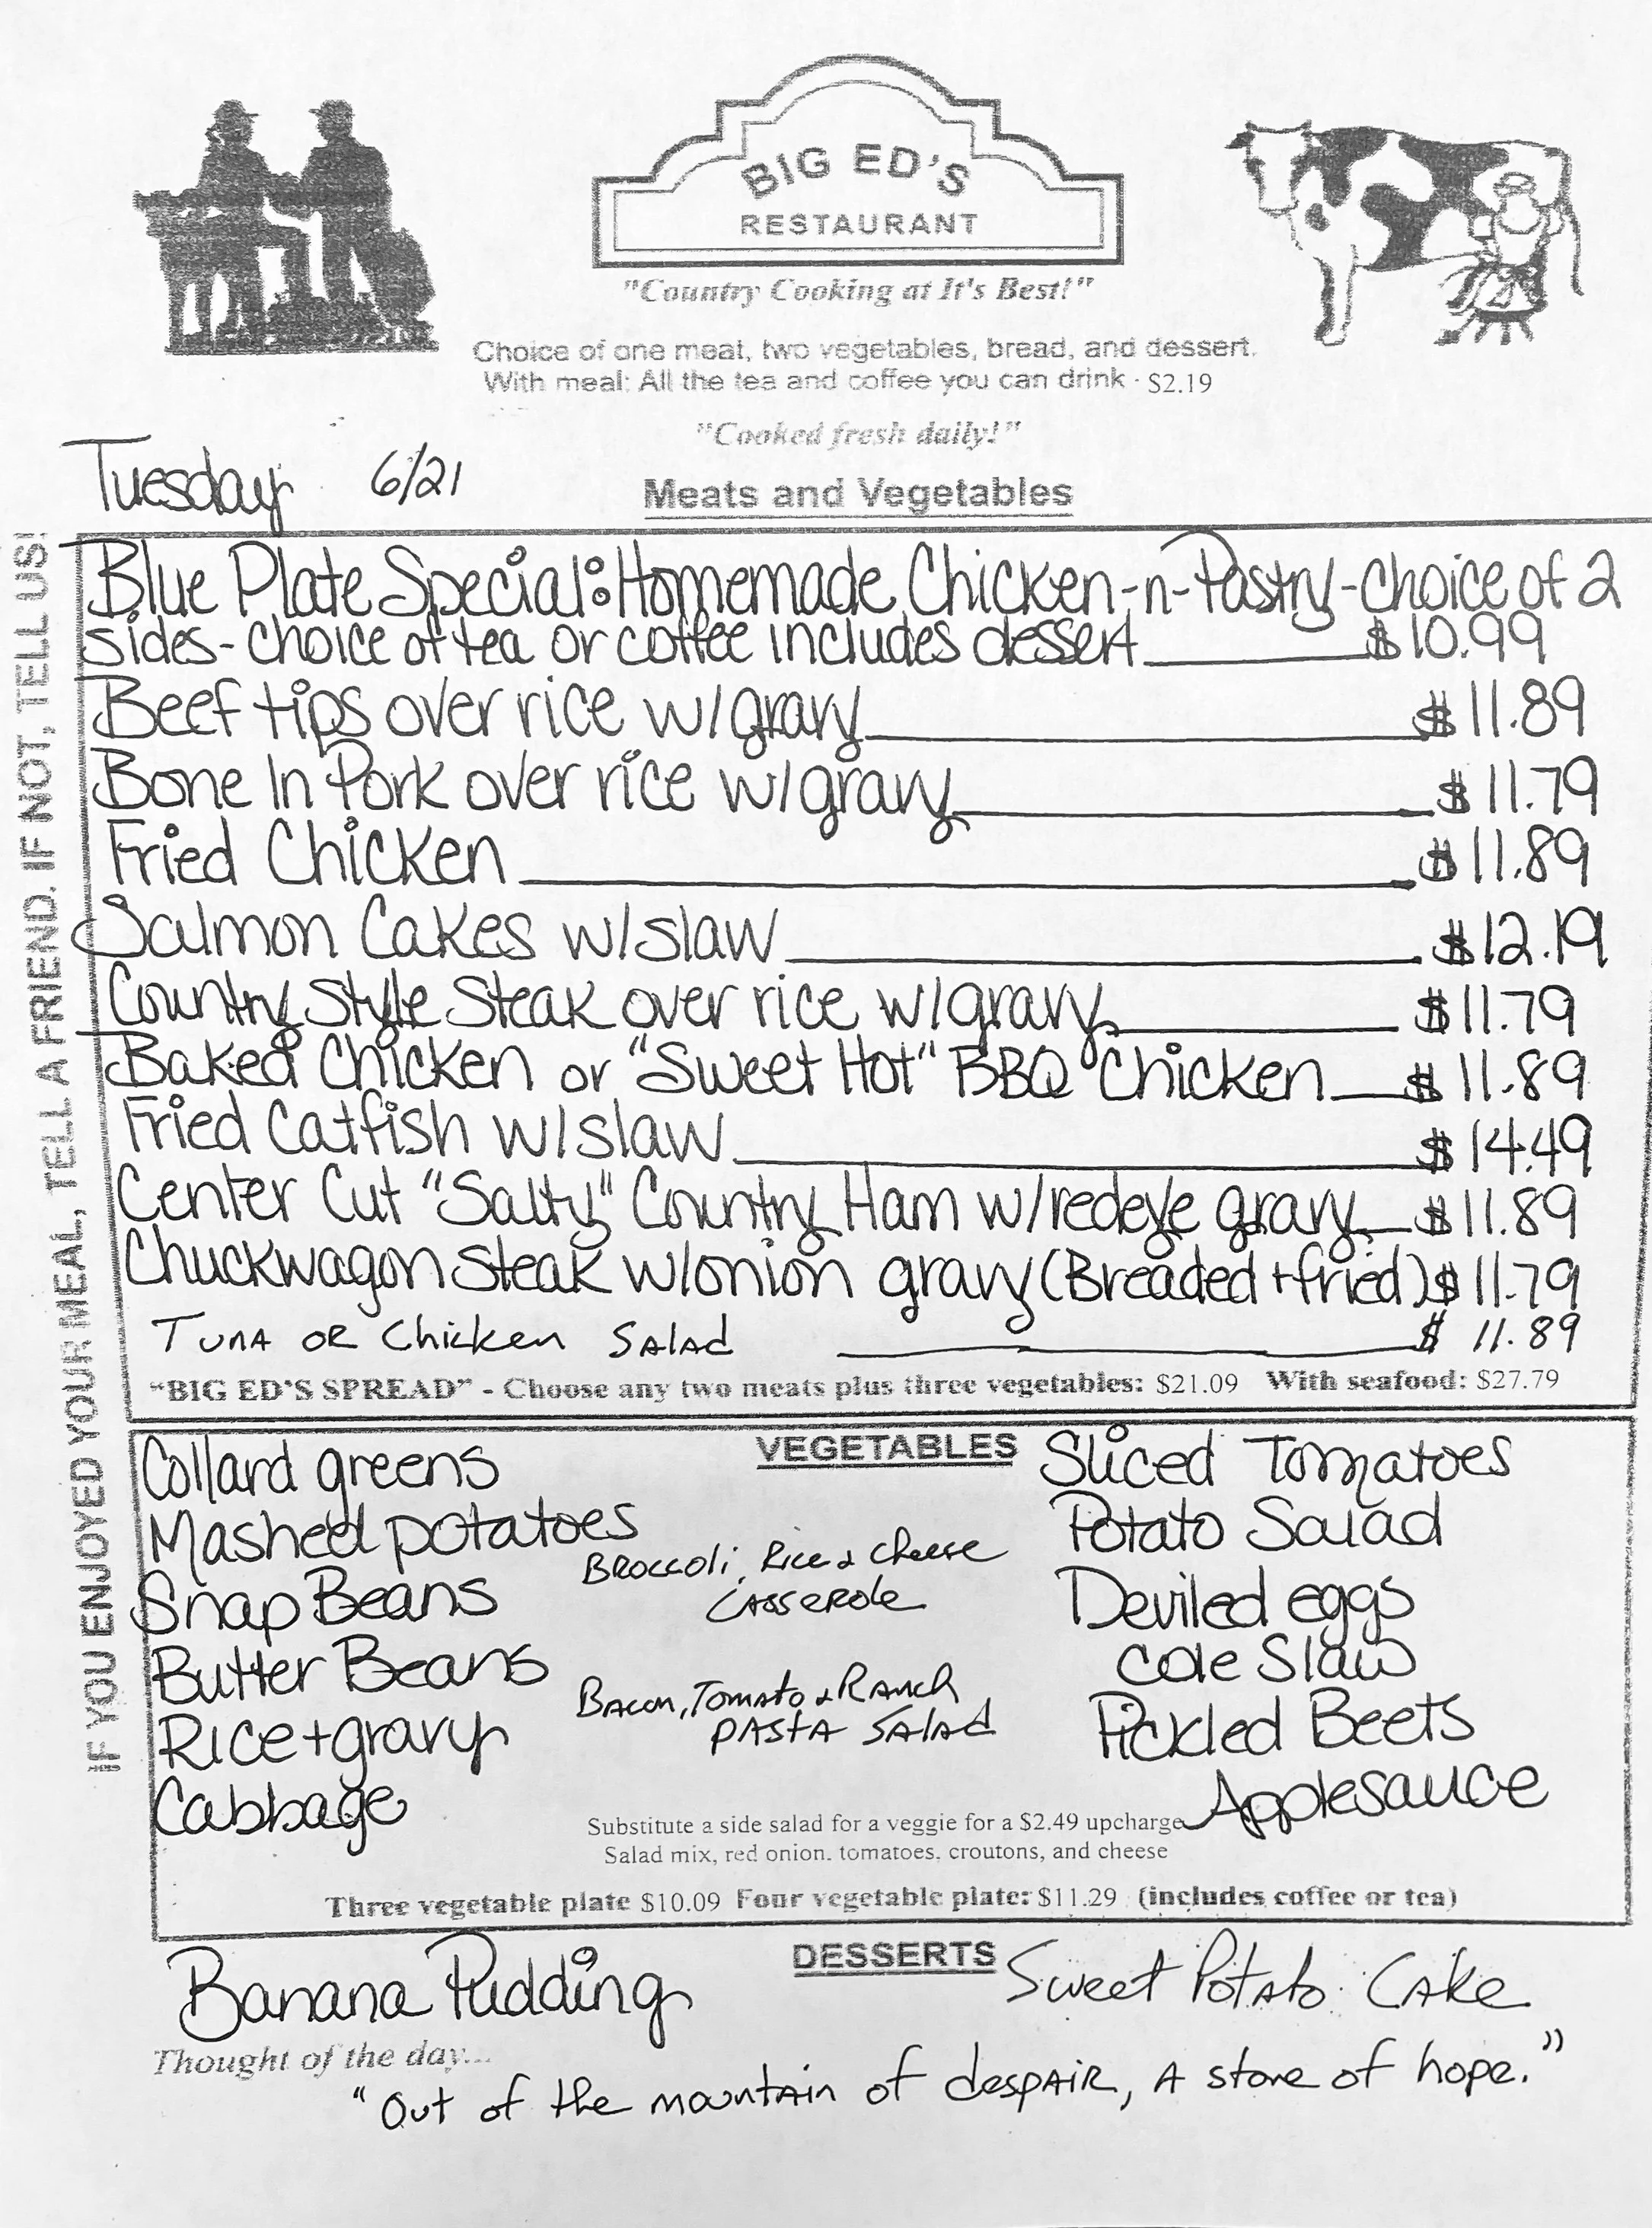 BIG ED'S
RESTAURANT
"Country Cooking at It's Best!"
Choice of one meat, two vegetables, bread, and dessert.
With meal: All the tea and coffee you can drink - $2.19
"Cooked fresh daily!"
Tuesday 6/21
Meats and Vegetables
IF YOU ENJOYED YOUR MEAL, TELL A FRIEND. IF NOT, TELL US!
Blue Plate Special: Homemade Chicken-n-Pastry-choice of 2
sides-choice of tea or coffee includes dessert $10.99
Beef tips over rice w/gravy $11.89
Bone In Pork over rice w/gravy $11.79
Fried Chicken $11.89
Salmon Cakes w/slaw $12.19
Country Style Steak over rice w/gravy $11.79
Baked Chicken or "Sweet Hot" BBQ Chicken $11.89
Fried Catfish w/slaw $14.49
Center Cut "Salty" Country Ham w/redeye gravy $11.89
Chuckwagon Steak w/onion gravy (Breaded + fried) $11.79
Tuna or Chicken Salad $11.89
"BIG ED'S SPREAD" - Choose any two meats plus three vegetables: $21.09 With seafood: $27.79
VEGETABLES
Collard greens
Mashed potatoes
Snap Beans
Butter Beans
Rice + gravy
Cabbage
Broccoli, Rice & Cheese
Casserole
Bacon, Tomato & Ranch
Pasta Salad
Sliced Tomatoes
Potato Salad
Deviled eggs
Cole Slaw
Pickled Beets
Applesauce
Substitute a side salad for a veggie for a $2.49 upcharge
Salad mix, red onion, tomatoes, croutons, and cheese
Three vegetable plate $10.09 Four vegetable plate: $11.29 (includes coffee or tea)
DESSERTS
Banana Pudding
Sweet Potato Cake
Thought of the day...
"Out of the mountain of despair, A stone of hope."